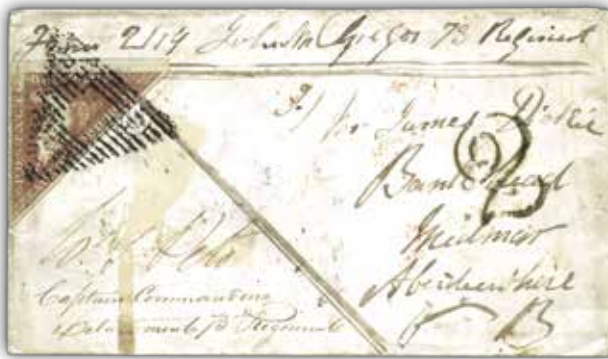 From 2119 John McGregor 73 Regiment
Mr James Dickie
Bankhead
Midmar
Aberdeenshire
N B
2
Captain Commanding
Detachment 73 Regiment